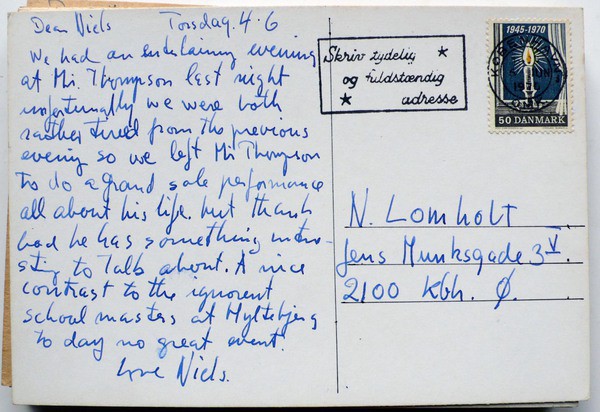 Dear Niels Torsdag. 4.6
We had an entertaining evening
at Mr. Thompson last night
unfortunally we were both
rather tired from the previous
evening so we left Mr Thompson
to do a grand solo performance
all about his life. but thank
God he has something intre-
sting to talk about. A nice
contrast to the ignorent
school masters at Hyltebjerg
to day no great event.
Love Niels.
Skriv tydelig
og fuldstændig
adresse
1945-1970
50 DANMARK
N. Lomholt
Jens Munksgade 3 V.
2100 Kbh. Ø.